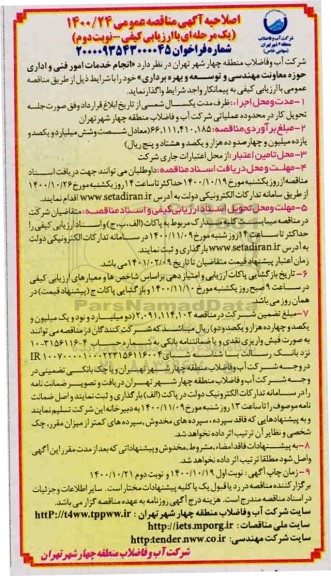 اصلاحیه آگهی مناقصه عمومی ۱۴۰۰/۲۴
(یک مرحله ای با ارزیابی کیفی - نوبت دوم)
شماره فراخوان ۲۰۰۰۰۹۳۵۴۳۰۰۰۰۴۵
شرکت آب و فاضلاب
منطقه ۴ شهر تهران
(سهامی خاص)
شرکت آب وفاضلاب منطقه چهار شهر تهران در نظر دارد «انجام خدمات امور فنی و اداری
حوزه معاونت مهندسی و توسعه و بهره برداری» خود را با شرایط ذیل از طریق مناقصه
عمومی با ارزیابی کیفی به پیمانکار واجد شرایط واگذار نماید.
۱- مدت و محل اجرا: ظرف مدت یکسال شمسی از تاریخ ابلاغ قرارداد وفق صورت جلسه
تحویل کار در محدوده عملیاتی شرکت آب وفاضلاب منطقه چهار شهر تهران
۲- مبلغ برآوردی مناقصه: ۶۶,۱۱۱,۴۱۰,۱۸۵ (معادل شصت و شش میلیارد و یکصد و
یازده میلیون و چهارصد و ده هزار و یکصد و هشتاد و پنج ریال)
۳- محل تامین اعتبار: از محل اعتبارات جاری شرکت
۴- مهلت و محل دریافت اسناد مناقصه: داوطلبان می توانند جهت دریافت اسناد
مناقصه از روز یکشنبه مورخ ۱۴۰۰/۱۰/۱۹ حداکثر تا ساعت ۱۴ روز یکشنبه مورخ ۱۴۰۰/۱۰/۲۶
از طریق سامانه تدارکات الکترونیکی دولت به آدرس www.setadiran.ir اقدام نمایند.
۵- مهلت و محل تحویل اسناد ارزیابی کیفی و اسناد مناقصه: متقاضیان شرکت
در مناقصه میبایست کلیه اسناد و مدارک مربوط به پاکات (الف، ب، ج) و اسناد ارزیابی کیفی را
حداکثر تا ساعت ۱۴ روز شنبه مورخ ۱۴۰۰/۱۱/۰۹ در سامانه تدارکات الکترونیکی دولت
به آدرس www.setadiran.ir بارگذاری و ثبت نمایند.
زمان اعتبار پیشنهاد قیمت متقاضیان تا تاریخ ۱۴۰۱/۰۲/۰۹ می باشد.
۶- تاریخ بازگشایی پاکات ارزیابی و امتیاز دهی بر اساس شاخص ها و معیارهای ارزیابی کیفی
در ساعت ۹ صبح روز یکشنبه مورخ ۱۴۰۰/۱۱/۱۰ و بازگشایی پاکات ج (پیشنهاد قیمت) در
همان روز می باشد.
۷- مبلغ تضمین شرکت در مناقصه ۲,۰۹۱,۱۱۴,۱۰۲ (دو میلیارد و نود و یک میلیون و
یکصد و چهارده هزار و یکصد و دو) ریال میباشد که شرکت کنندگان در مناقصه می توانند
به صورت فیش واریزی نقدی و یا ضمانتنامه بانکی به شماره حساب
نزد بانک رسالت با شناسه شبای
در وجه شرکت آب وفاضلاب منطقه چهار شهر تهران و یا چک بانکی تضمینی در
وجه شرکت آب وفاضلاب منطقه چهار شهر تهران دریافت و تصویر ضمانت نامه
را در سامانه تدارکات الکترونیک دولت در پاکت (الف) بارگذاری و ثبت نمایند و اصل ضمانت
نامه موصوف را تا ساعت ۱۴ روز شنبه مورخ ۱۴۰۰/۱۱/۰۹ به دبیرخانه این شرکت تسلیم نمایند
و به پیشنهادهایی که فاقد سپرده، سپرده های مخدوش، سپرده های کمتر از میزان مقرر، چک
شخصی و نظایر آن ترتیب اثر داده نخواهد شد.
۸- به پیشنهادات فاقد امضاء، مشروط، مخدوش و پیشنهاداتی که بعد از مدت مقرر این آگهی
واصل شود مطلقا ترتیب اثر داده نخواهد شد.
۹- زمان چاپ آگهی: نوبت اول ۱۴۰۰/۱۰/۱۹ و نوبت دوم ۱۴۰۰/۱۰/۲۱
برگزار کننده مناقصه در رد یا قبول یک یا کلیه پیشنهادات مختار است. سایر اطلاعات و جزئیات
در اسناد مناقصه مندرج است. هزینه درج آگهی روزنامه به عهده مناقصه گزار می باشد.
سایت شرکت آب و فاضلاب منطقه چهار شهر تهران : httP://t4ww.tppww.ir
سایت ملی مناقصات : http://iets.mporg.ir
سایت شرکت مهندسی: http:tender.nww.co.ir
شرکت آب و فاضلاب منطقه چهار شهر تهران